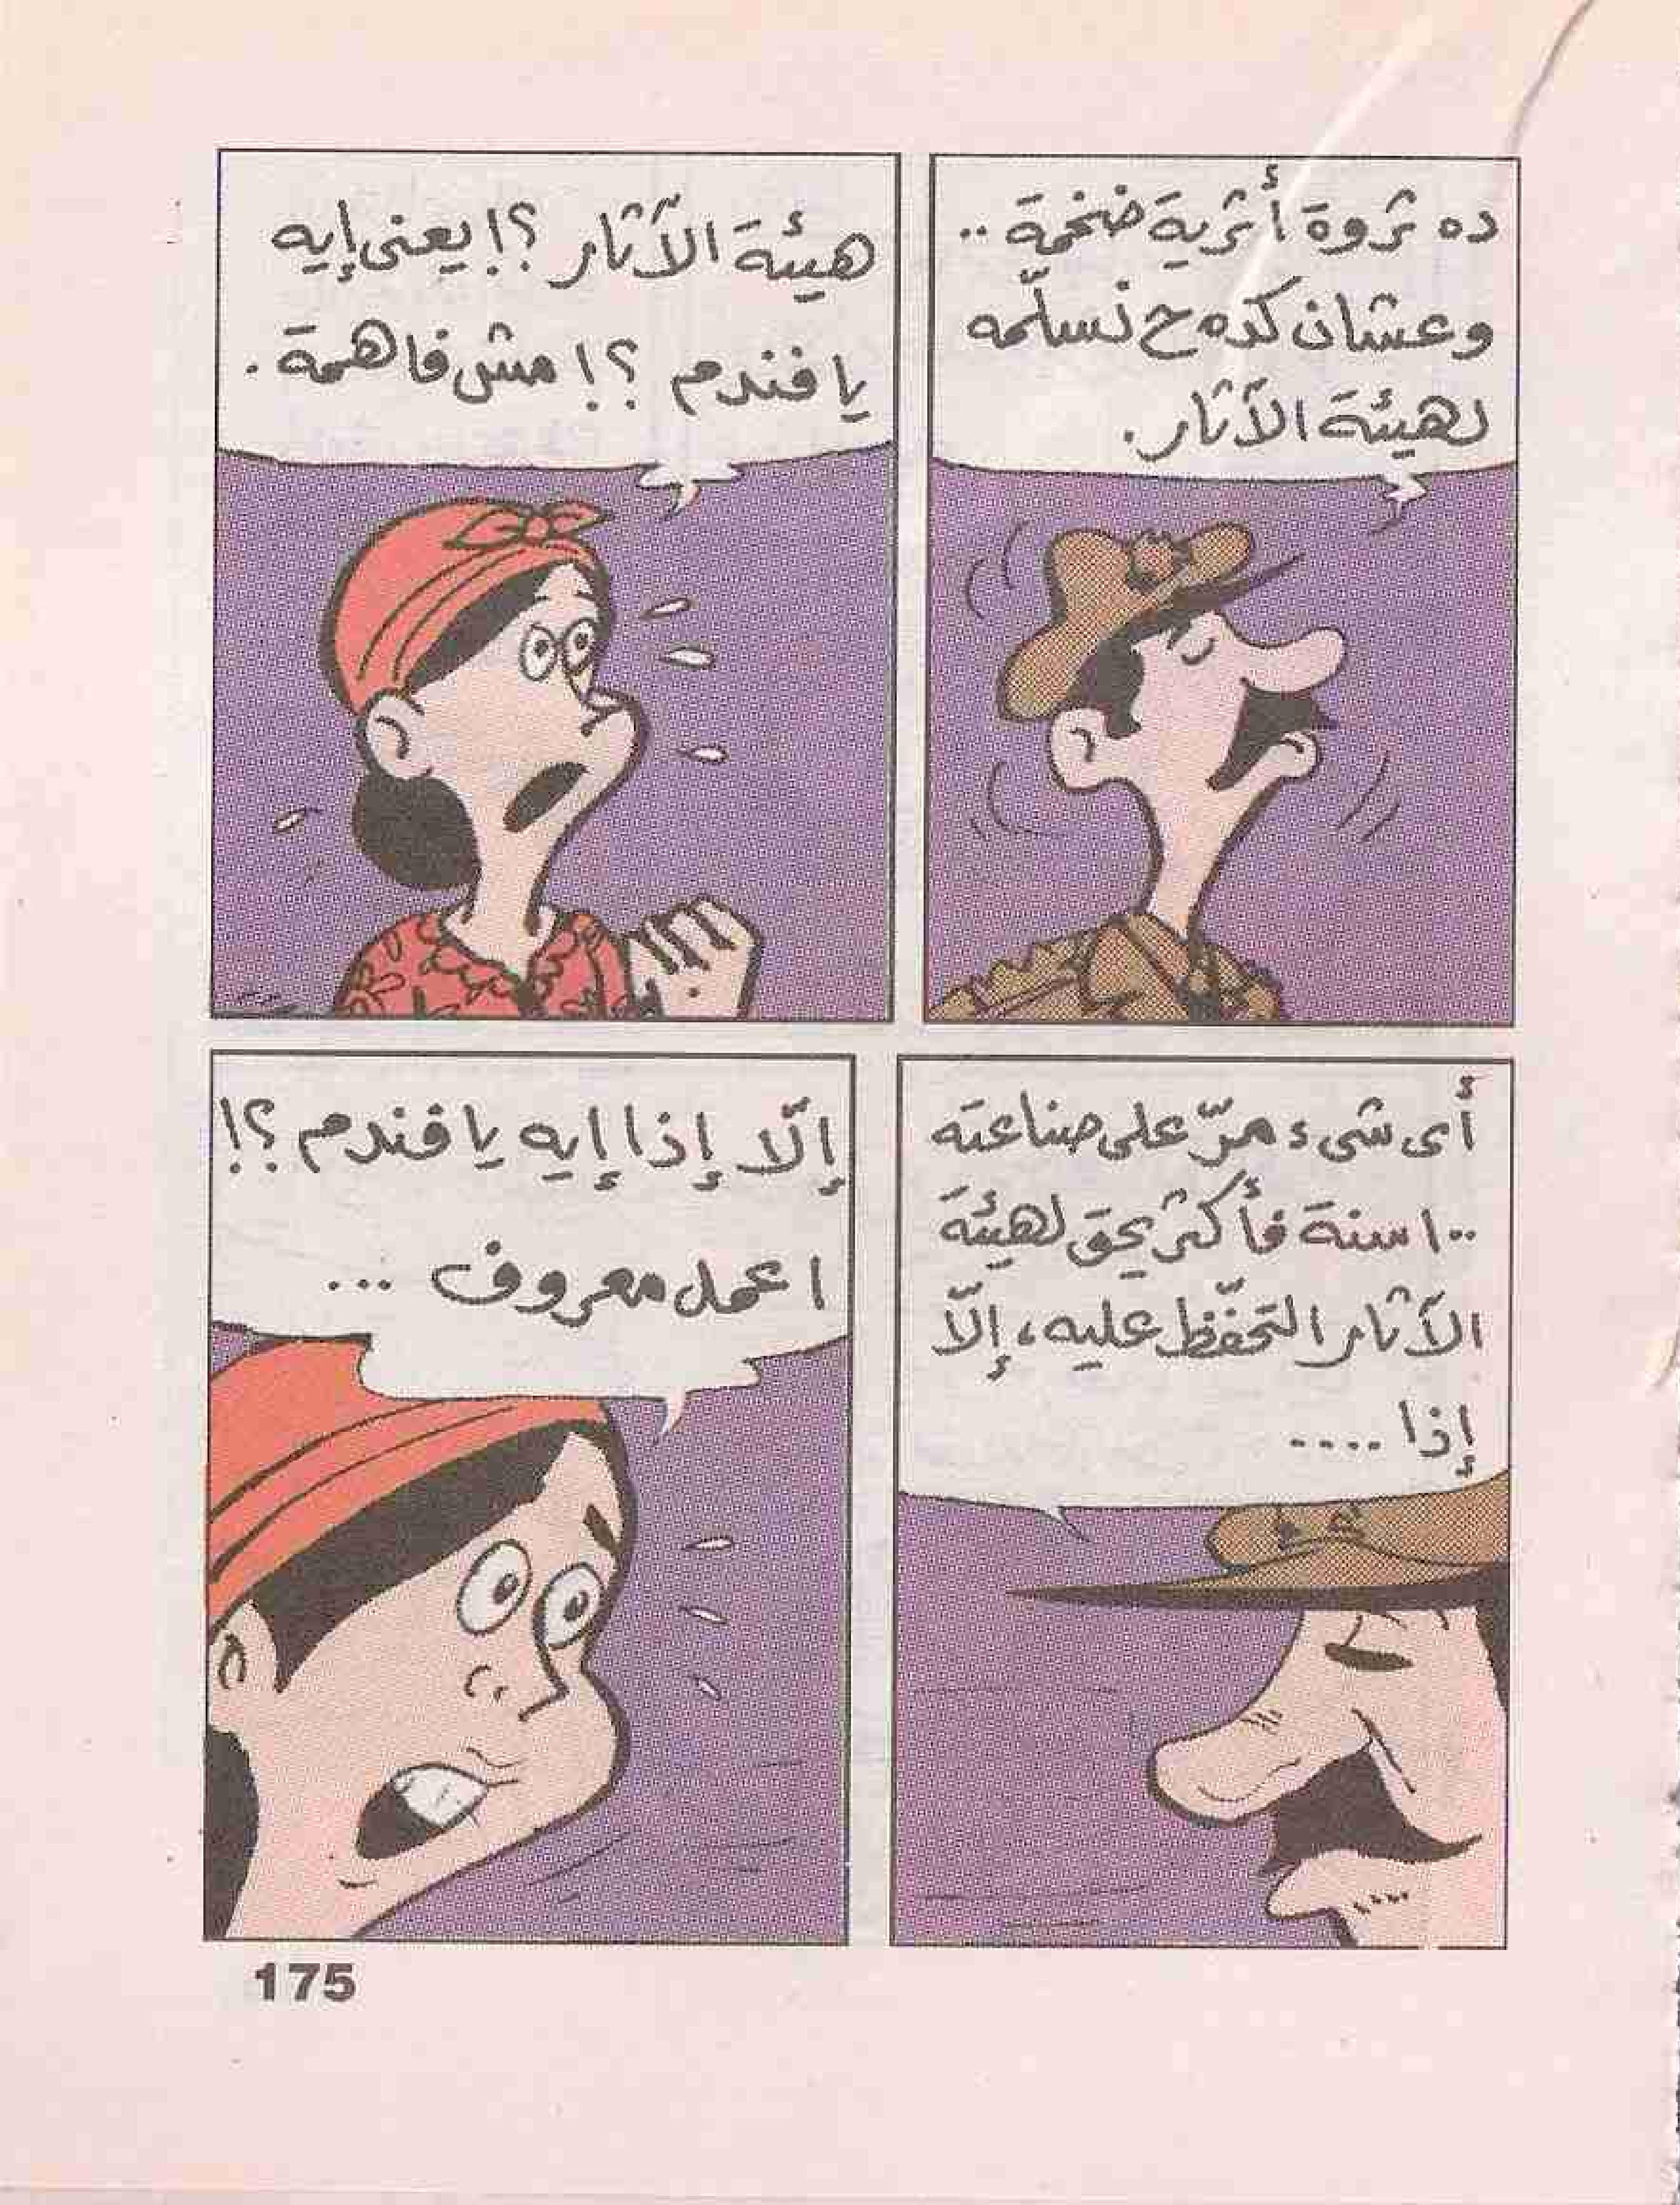 ده ثروة أثرية ضخمة ..
وعشان كده ح نسلّمه
لهيئة الآثار .
هيئة الآثار ؟! يعنى إيه
يا فندم ؟! مش فاهمة .
أى شىء مرّ على صناعته
١٠٠ سنة فأكثر يحق لهيئة
الآثار التحفّظ عليه ، إلّا
إذا ....
إلّا إذا إيه يا فندم ؟!
اعمل معروف ...
175